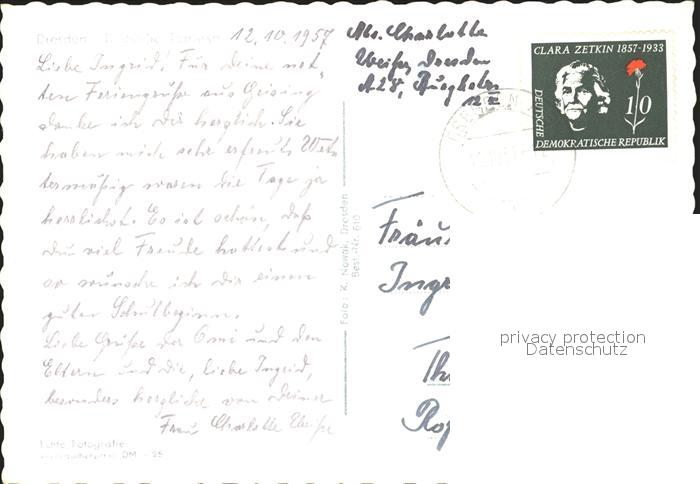 Dresden
12.10.1957
Liebe Ingrid! Für Deine net-
ten Feriengrüße aus Geising
danke ich Dir herzlich. Sie
haben mich sehr erfreut. Wet-
termäßig waren die Tage ja
herrlichst. Es ist schön, daß
Du viel Freude hattest und
so wünsche ich Dir einen
guten Schulbeginn.
Liebe Grüße der Omi und den
Eltern und Dir, liebe Ingrid,
besonders herzlich von Deiner
Frau Charlotte Weiße
Echte Fotografie
DM -.25
Foto: K. Nowak, Dresden
Best.-Nr. 610
Abs. Charlotte
Weiße, Dresden
A 28,
CLARA ZETKIN 1857-1933
10
DEUTSCHE
DEMOKRATISCHE REPUBLIK
Fräu
Ingr
Th
privacy protection
Datenschutz